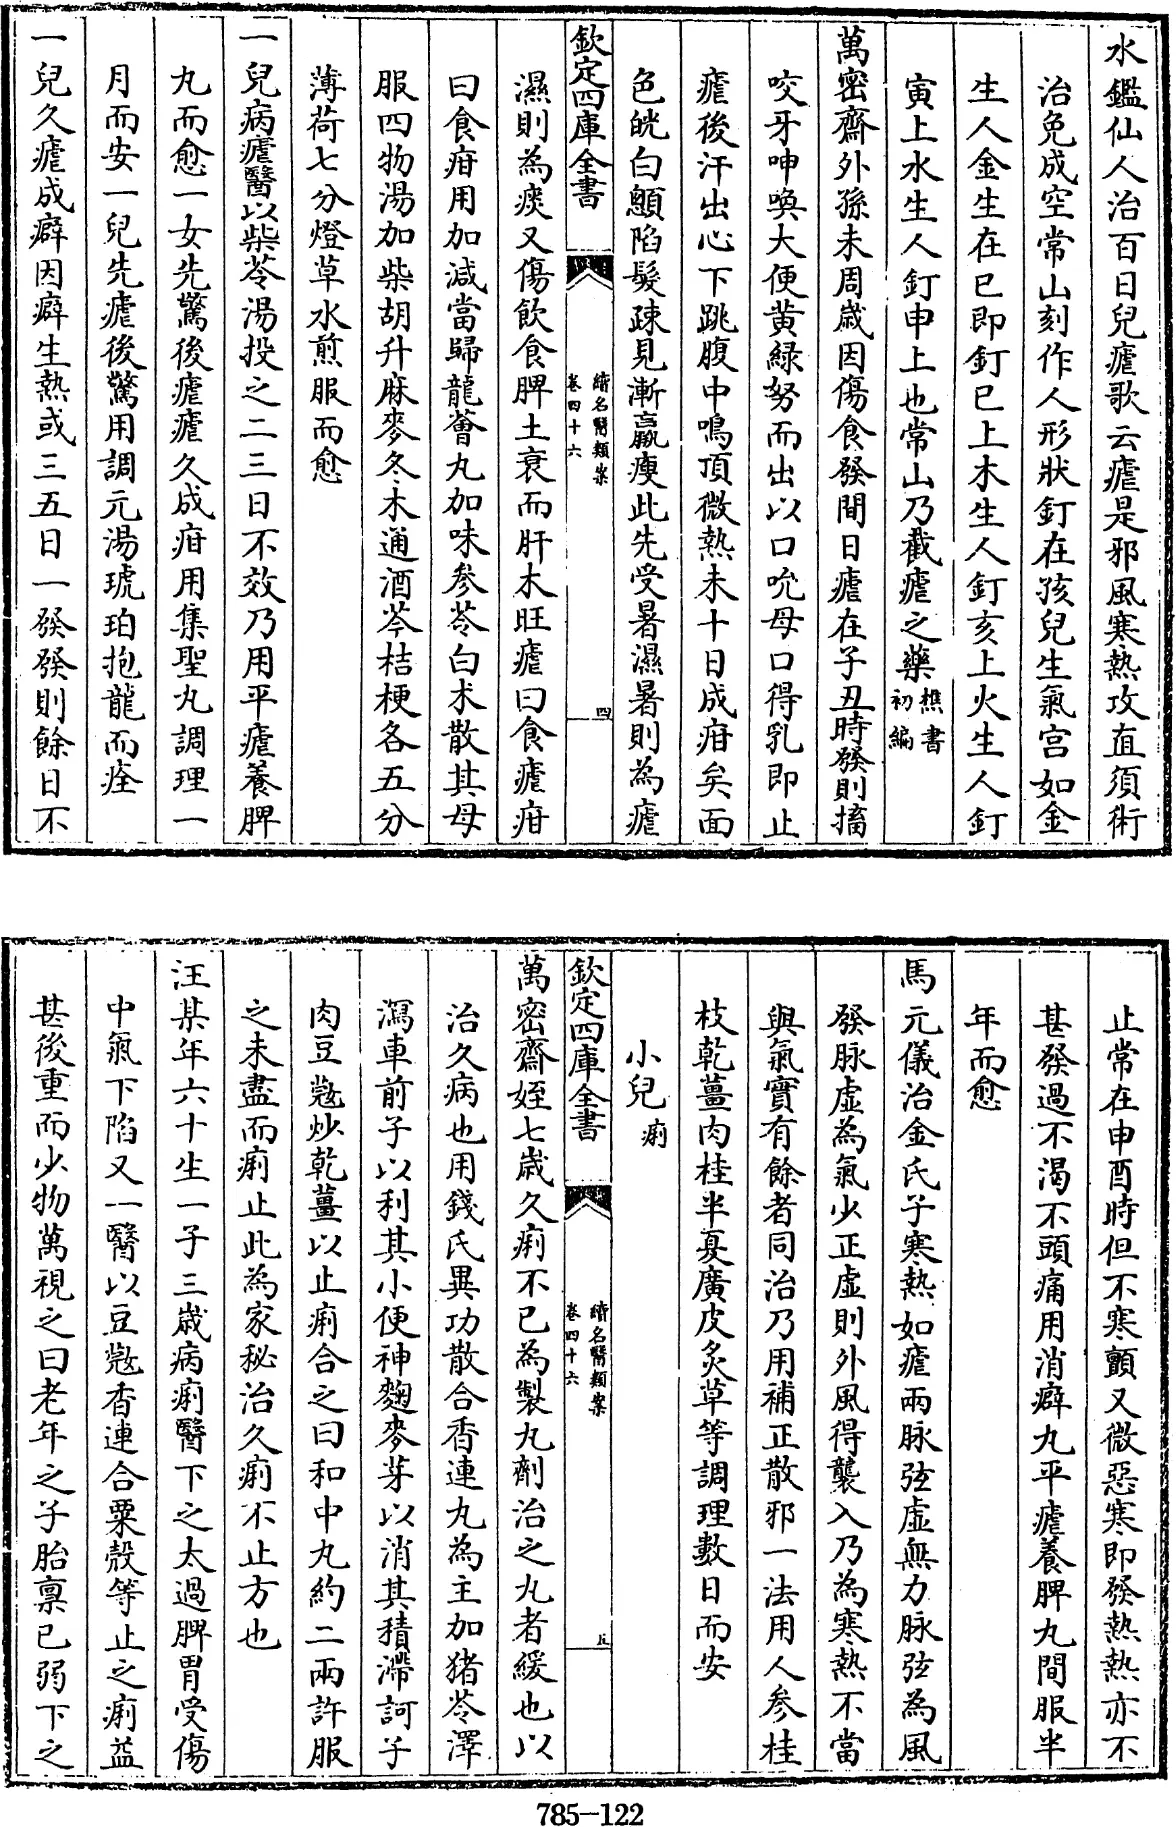 水鑑仙人治百日兒瘧歌云瘧是邪風寒熱攻直須術
治免成空常山刻作人形狀釘在孩兒生氣宮如金
生人金生在巳即釘巳上木生人釘亥上火生人釘
寅上水生人釘申上也常山乃截瘧之藥樵書初編
萬密齋外孫未周歲因傷食發間日瘧在子丑時發則搐
咬牙呻喚大便黄綠努而出以口吮母口得乳即止
瘧後汗出心下跳腹中鳴頂微熱未十日成疳矣面
色㿠白顖陷髮疎見漸羸瘦此先受暑濕暑則為瘧
欽定四庫全書
續名醫類案
卷四十六
四
濕則為痰又傷飲食脾土衰而肝木旺瘧曰食瘧疳
曰食疳用加減當歸龍薈丸加味參苓白术散其母
服四物湯加柴胡升麻麥冬木通酒芩桔梗各五分
薄荷七分燈草水煎服而愈
一兒病瘧醫以柴苓湯投之二三日不效乃用平瘧養脾
丸而愈一女先驚後瘧瘧久成疳用集聖丸調理一
月而安一兒先瘧後驚用調元湯琥珀抱龍而痊
一兒久瘧成癖因癖生熱或三五日一發發則餘日不
止常在申酉時但不寒顫又微惡寒即發熱熱亦不
甚發過不渴不頭痛用消癖丸平瘧養脾丸間服半
年而愈
馬元儀治金氏子寒熱如瘧兩脉弦虛無力脉弦為風
發脉虛為氣少正虛則外風得襲入乃為寒熱不當
與氣實有餘者同治乃用補正散邪一法用人參桂
枝乾薑肉桂半夏廣皮炙草等調理數日而安
小兒痢
欽定四庫全書
續名醫類案
卷四十六
五
萬密齋姪七歲久痢不已為製丸劑治之丸者緩也以
治久病也用錢氏異功散合香連丸為主加猪苓澤
瀉車前子以利其小便神麯麥芽以消其積滯訶子
肉豆蔻炒乾薑以止痢合之曰和中丸約二兩許服
之未盡而痢止此為家秘治久痢不止方也
汪某年六十生一子三歲病痢醫下之太過脾胃受傷
中氣下陷又一醫以豆蔻香連合粟殼等止之痢益
甚後重而少物萬視之曰老年之子胎禀已弱下之
785-122